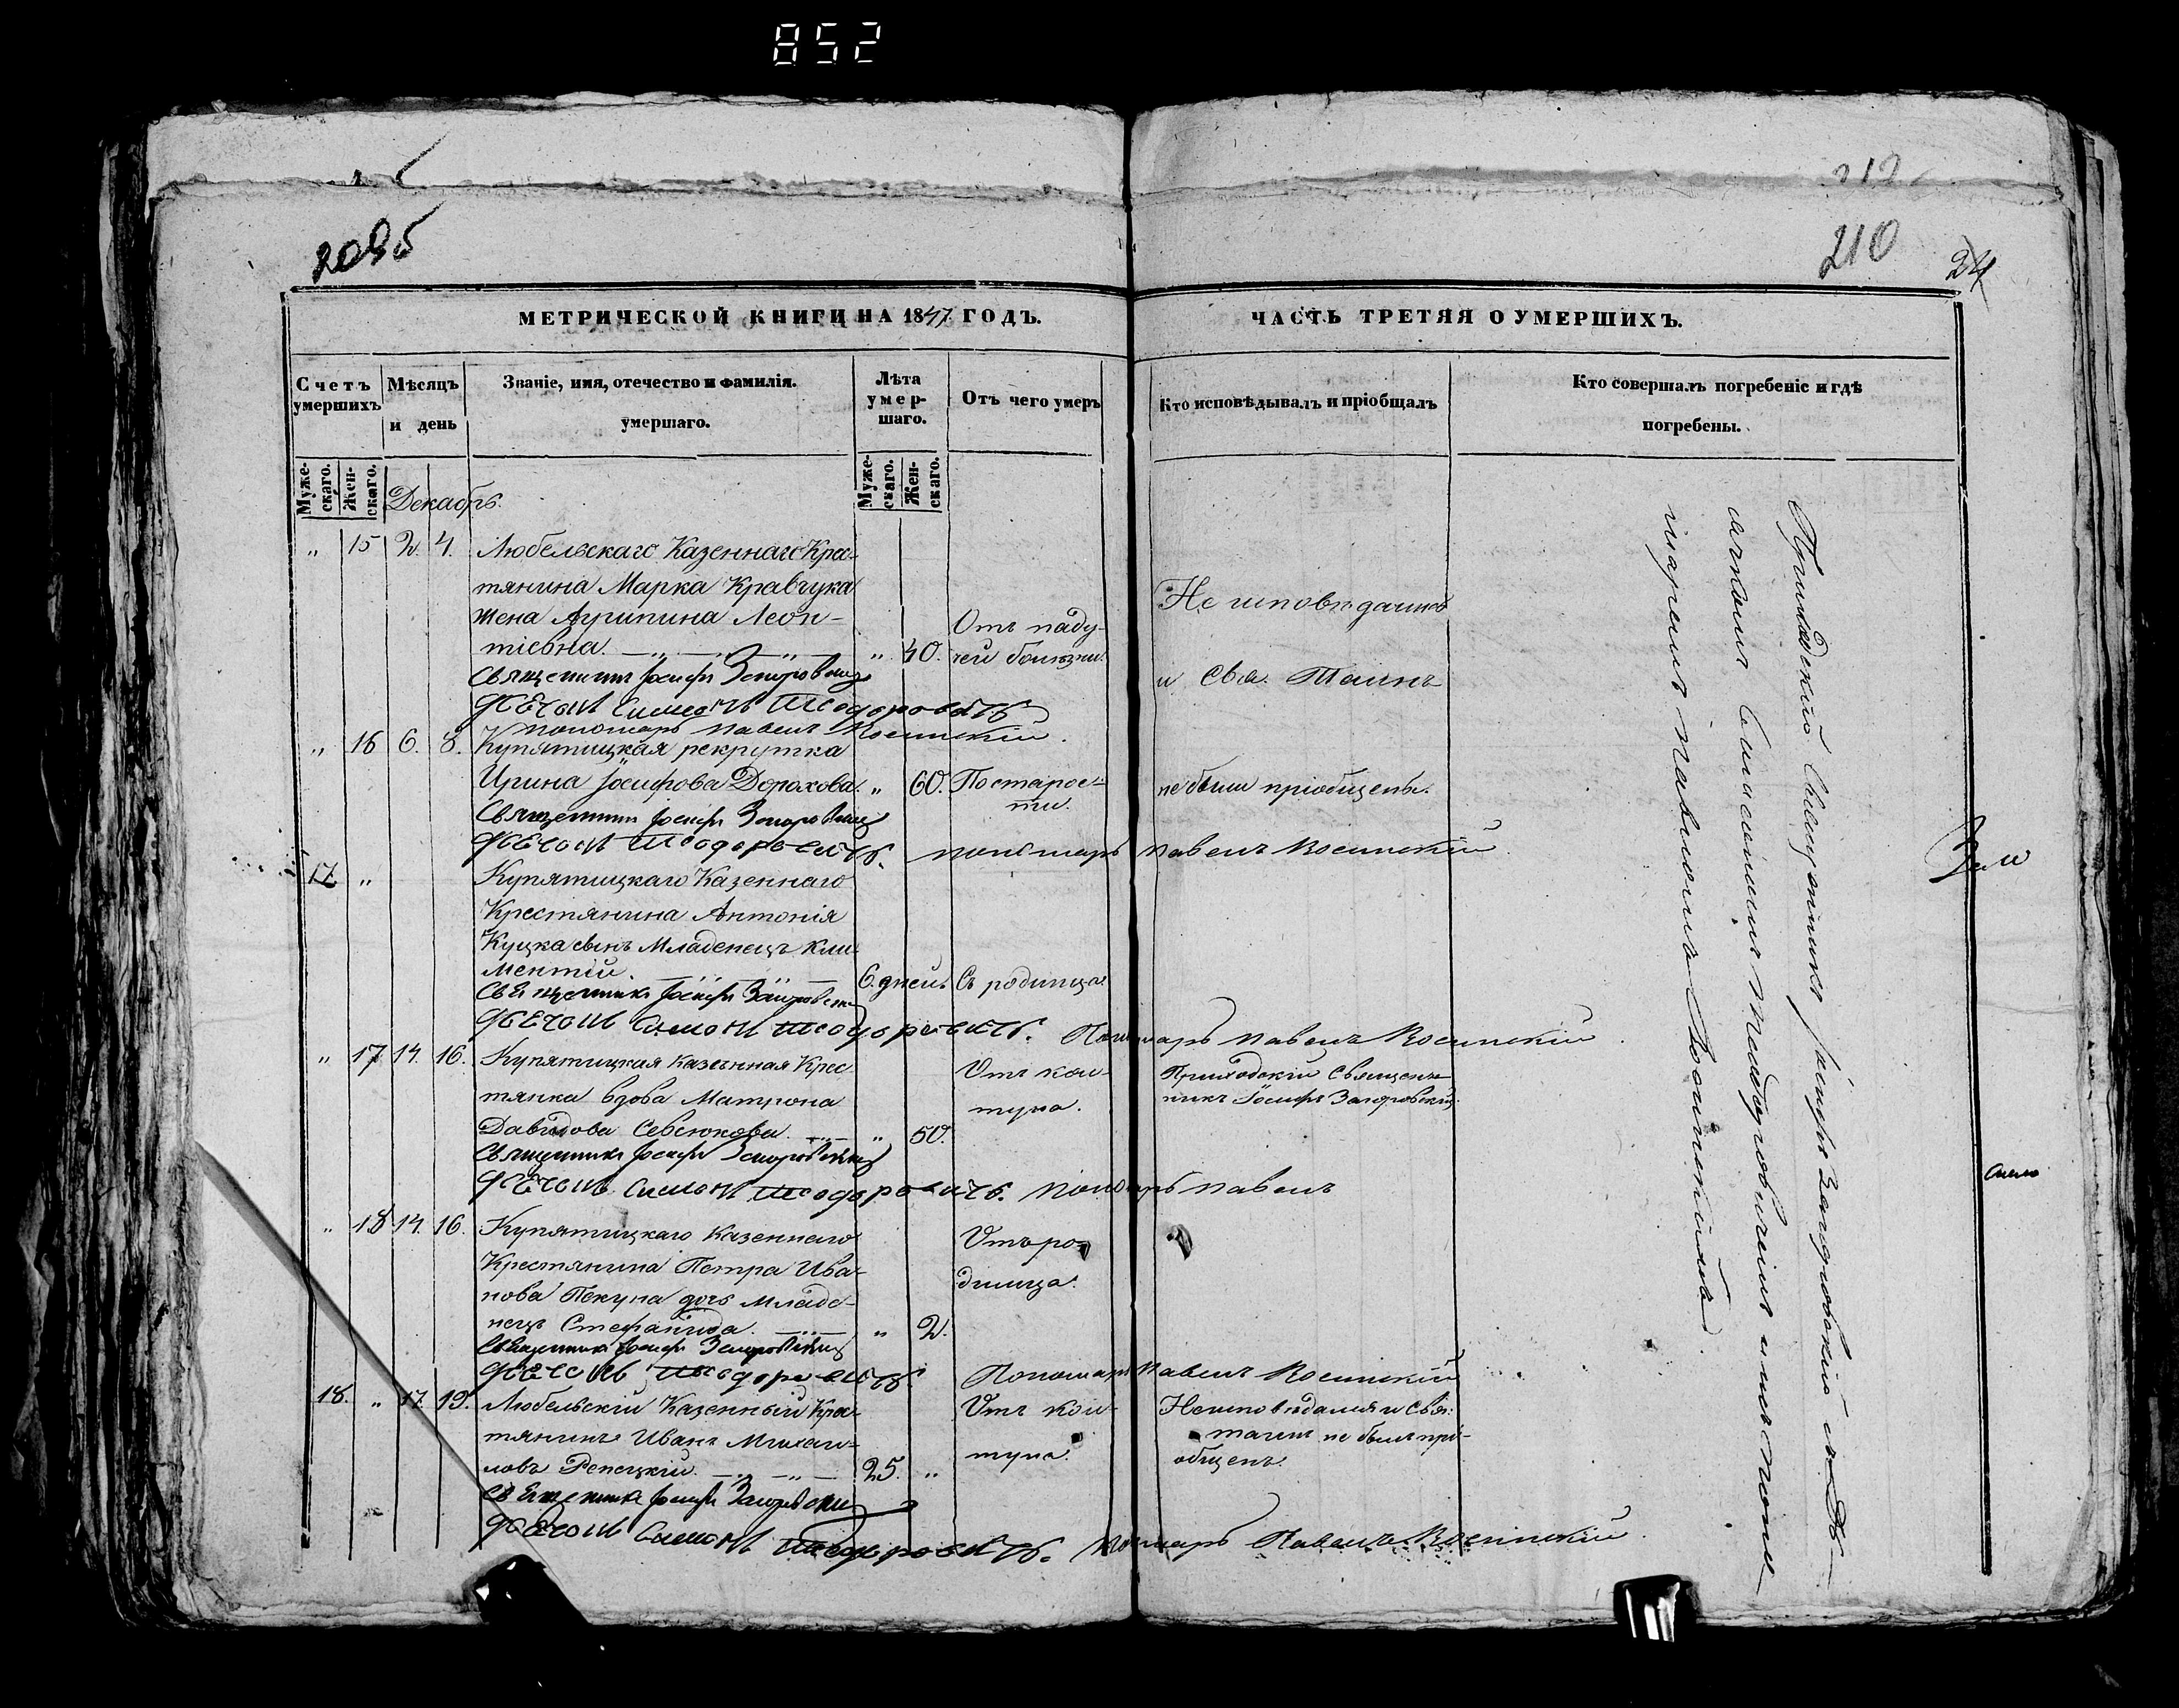 852
209об
210
24
МЕТРИЧЕСКОЙ КНИГИ НА 1847 ГОДЪ.
ЧАСТЬ ТРЕТЯЯ О УМЕРШИХЪ.
Счетъ умершихъ
Мѣсяцъ и день
Званіе, имя, отечество и фамилія.
умершаго.
Лѣта умер-
шаго.
Отъ чего умеръ
Кто исповѣдывалъ и пріобщалъ
Кто совершалъ погребеніе и гдѣ
погребены.
Муже-
скаго.
Жен-
скаго.
Декабрь.
Муже-
скаго.
Жен-
скаго.
„ 15 2. 4. Любельскаго Казеннаго Крес-
тянина Марка Кравчука
жена Агрипина Леон-
тіевна. „ 40. Отъ паду-
чей болѣзни.
Не исповѣданна
и Свя. Таинъ
Священникъ Іосифъ Загоровскій
Симонъ
пономаръ Павелъ Росинскій.
„ 16 6. 8. Купятицкая рекрутка
Ирина Іосифова Дорохова. „ 60. По старос-
ти.
не были пріобщены.
Священникъ Іосифъ Загоровскій
пономаръ Павелъ Росинскій
17 „ Купятицкаго Казеннаго
Крестянина Антонія
Куцка сынъ Младенецъ Кли-
ментій. 6 дней. Съ родимца
Священникъ Іосифъ Загоровскій
Симонъ
Пономаръ Павелъ Росинскій
„ 17 14. 16. Купятицкая казенная Крес-
тянка вдова Матрона
Давидова Севсюкова. „ 50.
Отъ кол-
туна.
Приходскій Священ-
никъ Іосифъ Загоровскій.
Священникъ Іосифъ Загоровскій
Симонъ
пономаръ Павелъ
„ 18 14. 16. Купятицкаго казеннаго
Крестянина Петра Ива-
нова Пекуна дочь младе-
нецъ Стефанида. „ 2.
Отъ ро-
димца.
Священникъ Іосифъ Загоровскій
Пономаръ Павелъ Росинскій
18. „ 17. 19. Любельскій Казенный Крес-
тянинъ Иванъ Михаи-
ловъ Репецкій. 25. „
Отъ кол-
туна.
Не исповѣдался и Свя:
таинъ не былъ прі-
общенъ.
Священникъ Іосифъ Загоровскій
Симонъ
пономаръ Павелъ Росинскій
Приходскій Священникъ Іосифъ Загоровскій съ